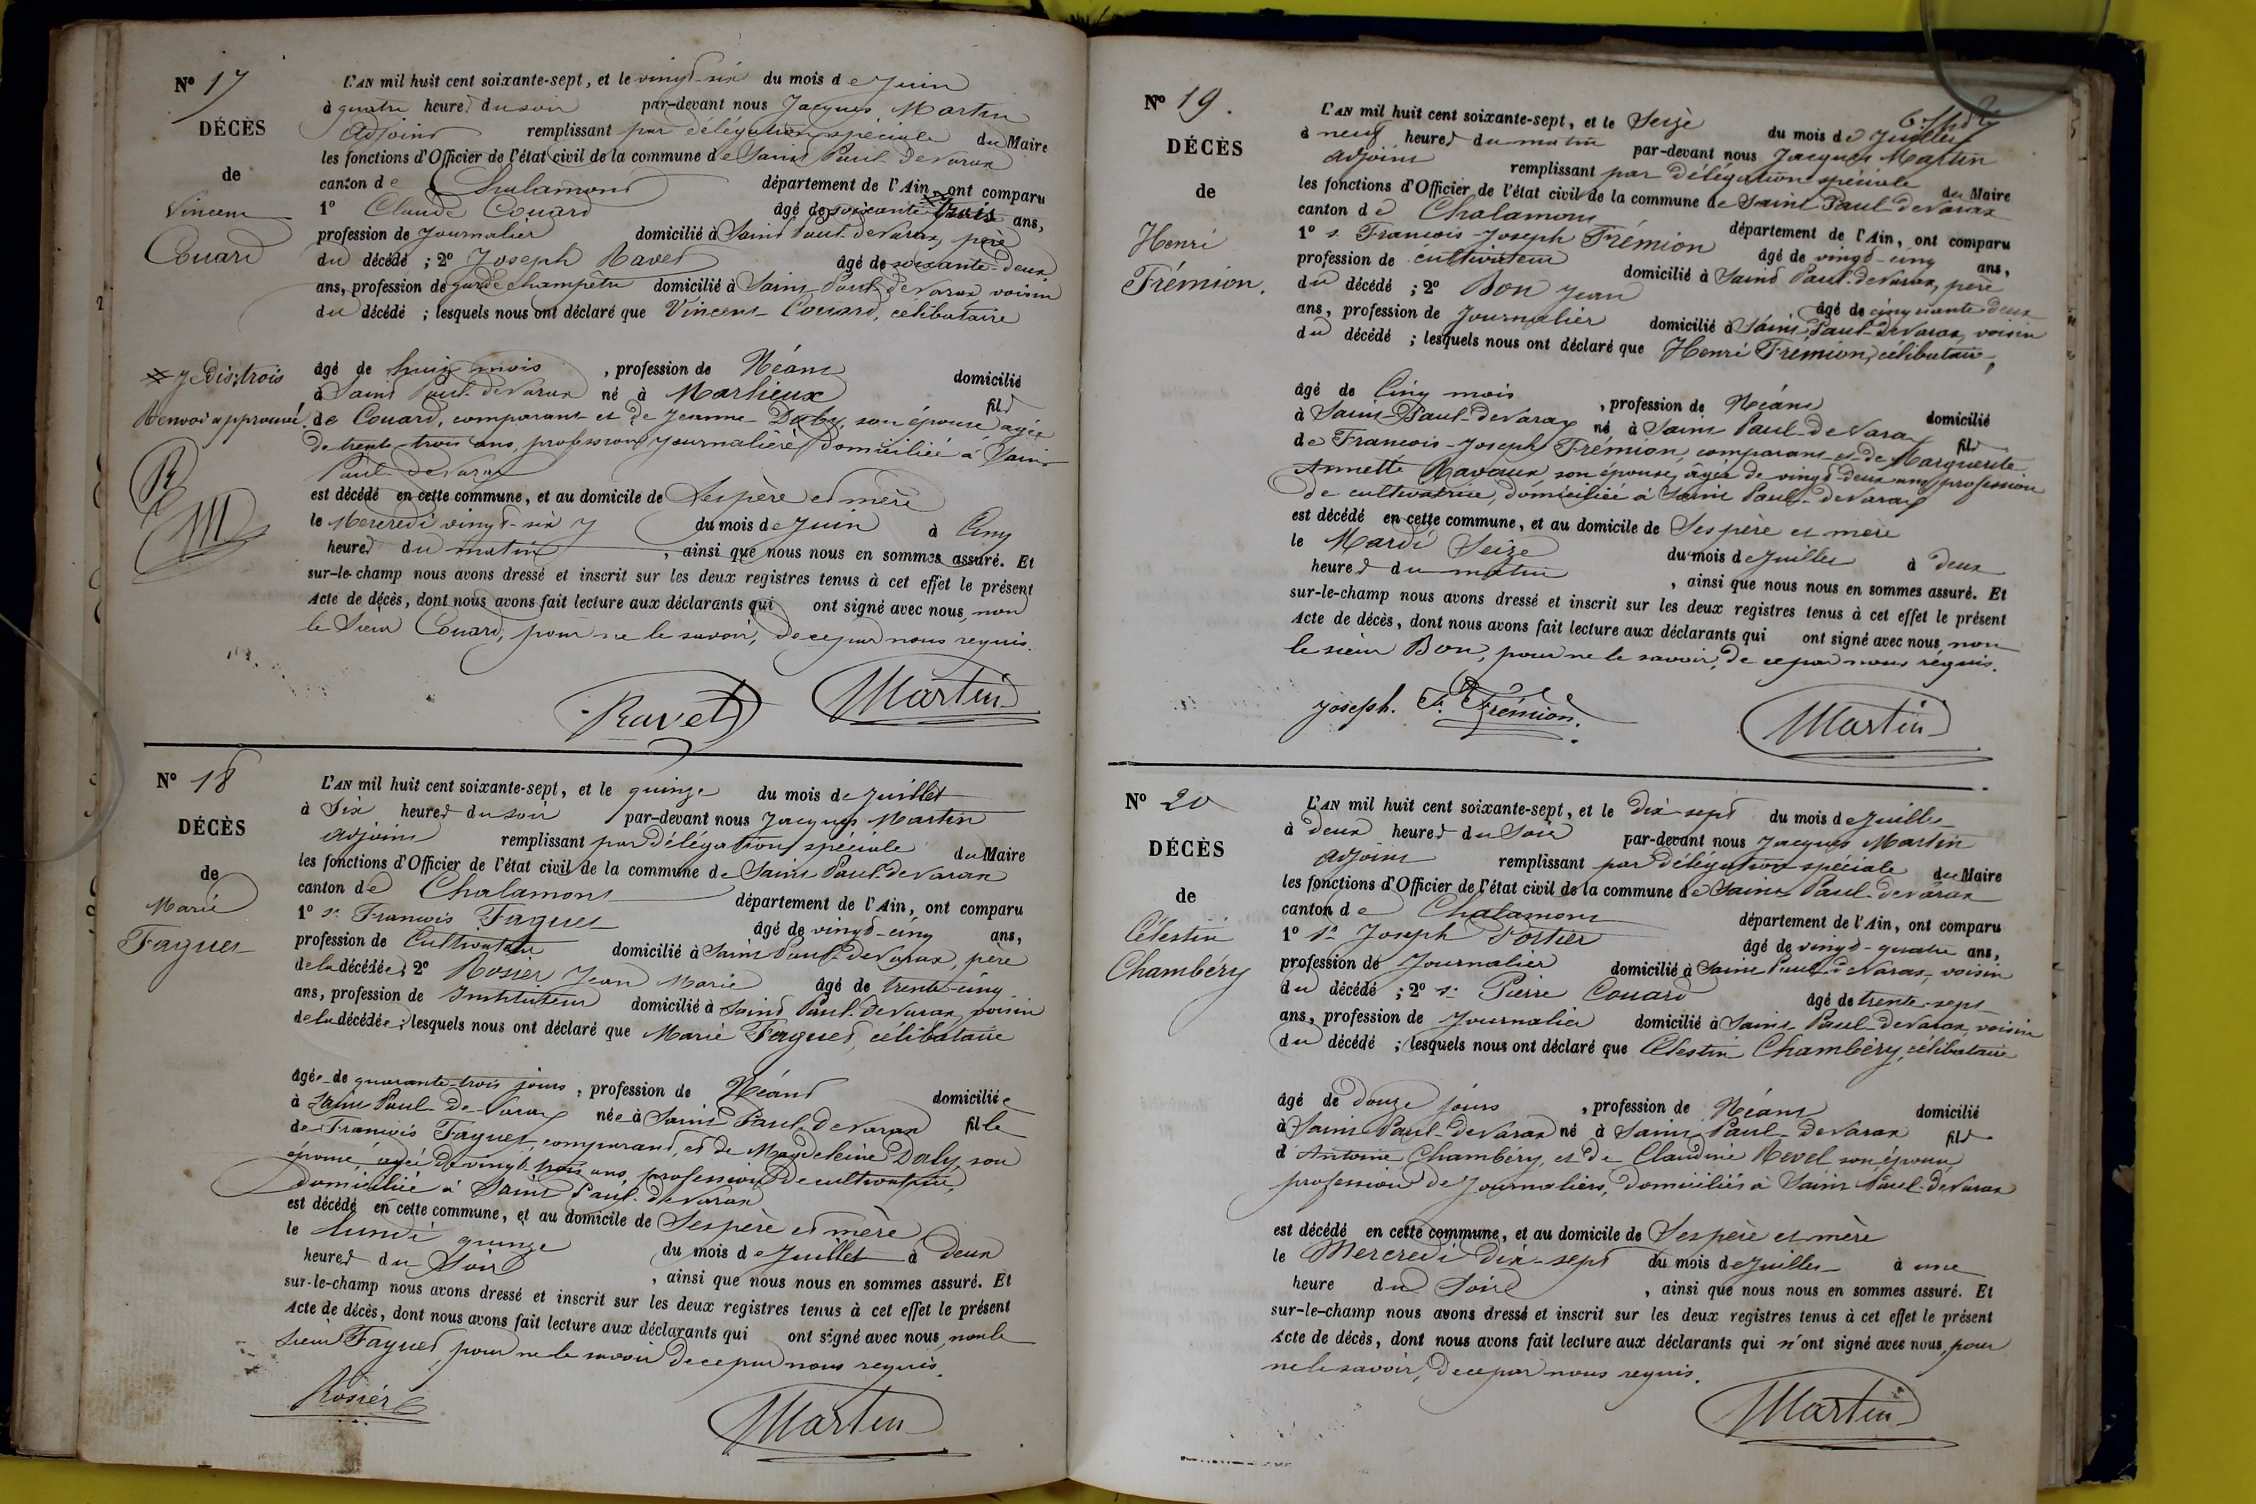 Nº 17
DÉCÈS
de
Vincent
Couard
L'AN mil huit cent soixante-sept, et le vingt-six du mois de Juin
à quatre heures du soir par-devant nous Jacques Martin
adjoint remplissant par délégation spéciale du Maire
les fonctions d'Officier de l'état civil de la commune de Saint Paul-de Varax
canton de Chalamont département de l'Ain, ont comparu
1º Claude Couard âgé de soixante trois ans,
profession de Journalier domicilié à Saint Paul-de Varax, père
du décédé ; 2º Joseph Ravet âgé de soixante-deux
ans, profession de garde champêtre domicilié à Saint Paul-de Varax voisin
du décédé ; lesquels nous ont déclaré que Vincent Couard, célibataire
âgé de huit mois , profession de Néant domicilié
à Saint Paul-de Varax né à Marlieux fils
de Couard, comparant et de Jeanne Daly, son épouse agée
de trente-trois ans, profession journalière domiciliée à Saint
Paul de Varax
est décédé en cette commune, et au domicile de Ses père et mère
le Mercredi vingt-six du mois de Juin à Cinq
heures du matin , ainsi que nous nous en sommes assuré. Et
sur-le-champ nous avons dressé et inscrit sur les deux registres tenus à cet effet le présent
Acte de décès, dont nous avons fait lecture aux déclarants qui ont signé avec nous, non
le Sieur Couard, pour ne le savoir, de ce par nous requis.
Je dis, trois
Renvoi approuvé.
R
M
Ravet Martin
Nº 18
DÉCÈS
de
Marie
Faguet
L'AN mil huit cent soixante-sept, et le quinze du mois de Juillet
à Six heures du soir par-devant nous Jacques Martin
adjoint remplissant par délégation spéciale du Maire
les fonctions d'Officier de l'état civil de la commune de Saint Paul-de Varax
canton de Chalamont département de l'Ain, ont comparu
1º sr François Faguet âgé de vingt-cinq ans,
profession de Cultivateur domicilié à Saint Paul-de Varax, père
de la décédée ; 2º Rosier Jean Marie âgé de trente-cinq
ans, profession de Instituteur domicilié à Saint Paul-de Varax voisin
de la décédée ; lesquels nous ont déclaré que Marie Faguet, célibataire
âgée de quarante-trois jours , profession de Néant domiciliée
à Saint Paul-de-Varax née à Saint Paul-de Varax fille
de François Faguet, comparant, et de Magdeleine Daly, son
épouse, agée de vingt trois ans, profession de cultivatrice,
domiciliée à Saint Paul-de Varax
est décédé en cette commune, et au domicile de Ses père et mère
le lundi quinze du mois de Juillet à Deux
heures du Soir , ainsi que nous nous en sommes assuré. Et
sur-le-champ nous avons dressé et inscrit sur les deux registres tenus à cet effet le présent
Acte de décès, dont nous avons fait lecture aux déclarants qui ont signé avec nous, non le
sieur Faguet, pour ne le savoir de ce par nous requis.
Rosier Martin
Nº 19.
DÉCÈS
de
Henri
Frémion.
L'AN mil huit cent soixante-sept, et le Seize du mois de Juillet
à neuf heures du matin par-devant nous Jacques Martin
adjoint remplissant par délégation spéciale du Maire
les fonctions d'Officier de l'état civil de la commune de Saint Paul-de Varax
canton de Chalamont département de l'Ain, ont comparu
1º sr François-Joseph Frémion âgé de vingt-cinq ans,
profession de cultivateur domicilié à Saint Paul-de Varax, père
du décédé ; 2º Bon Jean âgé de cinquante deux
ans, profession de Journalier domicilié à Saint Paul-de Varax, voisin
du décédé ; lesquels nous ont déclaré que Henri Frémion, célibataire,
âgé de Cinq mois , profession de Néant domicilié
à Saint-Paul-de Varax né à Saint Paul-de Varax fils
de François-Joseph Frémion, comparant et de Marguerite
Annette Ravaux, son épouse, âgée de vingt-deux ans, profession
de cultivatrice, domiciliée à Saint Paul-de Varax
est décédé en cette commune, et au domicile de Ses père et mère
le Mardi Seize du mois de Juillet à deux
heures du matin , ainsi que nous nous en sommes assuré. Et
sur-le-champ nous avons dressé et inscrit sur les deux registres tenus à cet effet le présent
Acte de décès, dont nous avons fait lecture aux déclarants qui ont signé avec nous, non
le sieur Bon, pour ne le savoir, de ce par nous réquis.
Joseph. F. Frémion. Martin
Nº 20
DÉCÈS
de
Célestin
Chambéry
L'AN mil huit cent soixante-sept, et le dix-sept du mois de Juillet
à deux heures du Soir par-devant nous Jacques Martin
adjoint remplissant par délégation spéciale du Maire
les fonctions d'Officier de l'état civil de la commune de Saint Paul-de Varax
canton de Chalamont département de l'Ain, ont comparu
1º sr Joseph Portier âgé de vingt-quatre ans,
profession de Journalier domicilié à Saint Paul-de Varax, voisin
du décédé ; 2º sr Pierre Couard âgé de trente-sept
ans, profession de Journalier domicilié à Saint Paul-de Varax, voisin
du décédé ; lesquels nous ont déclaré que Célestin Chambéry, célibataire
âgé de douze jours , profession de Néant domicilié
à Saint Paul-de Varax né à Saint Paul-de Varax fils
d'Antoine Chambéry, et de Claudine Revel son épouse,
profession de Journaliers, domiciliés à Saint Paul-de Varax
est décédé en cette commune, et au domicile de Ses père et mère
le Mercredi dix-sept du mois de Juillet à une
heure du Soir , ainsi que nous nous en sommes assuré. Et
sur-le-champ nous avons dressé et inscrit sur les deux registres tenus à cet effet le présent
Acte de décès, dont nous avons fait lecture aux déclarants qui n'ont signé avec nous, pour
ne le savoir, de ce par nous requis.
Martin